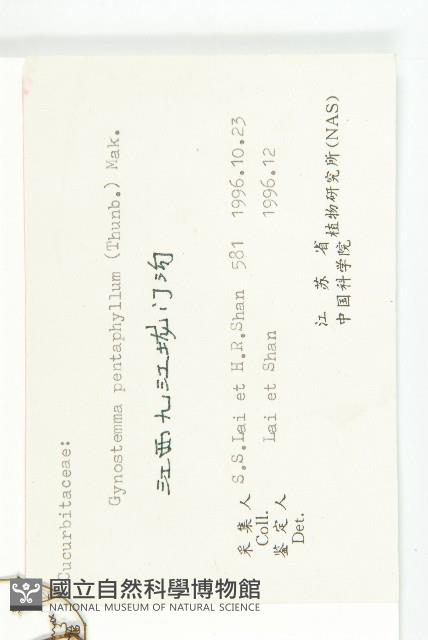 Cucurbitaceae:
Gynostemma pentaphyllum (Thunb.) Mak.
江西九江垅门沟
采集人 S.S.Lai et H.R.Shan 581 1996.10.23
Coll.
鉴定人 Lai et Shan 1996.12
Det.
江苏省
中国科学院植物研究所(NAS)
國立自然科學博物館
NATIONAL MUSEUM OF NATURAL SCIENCE